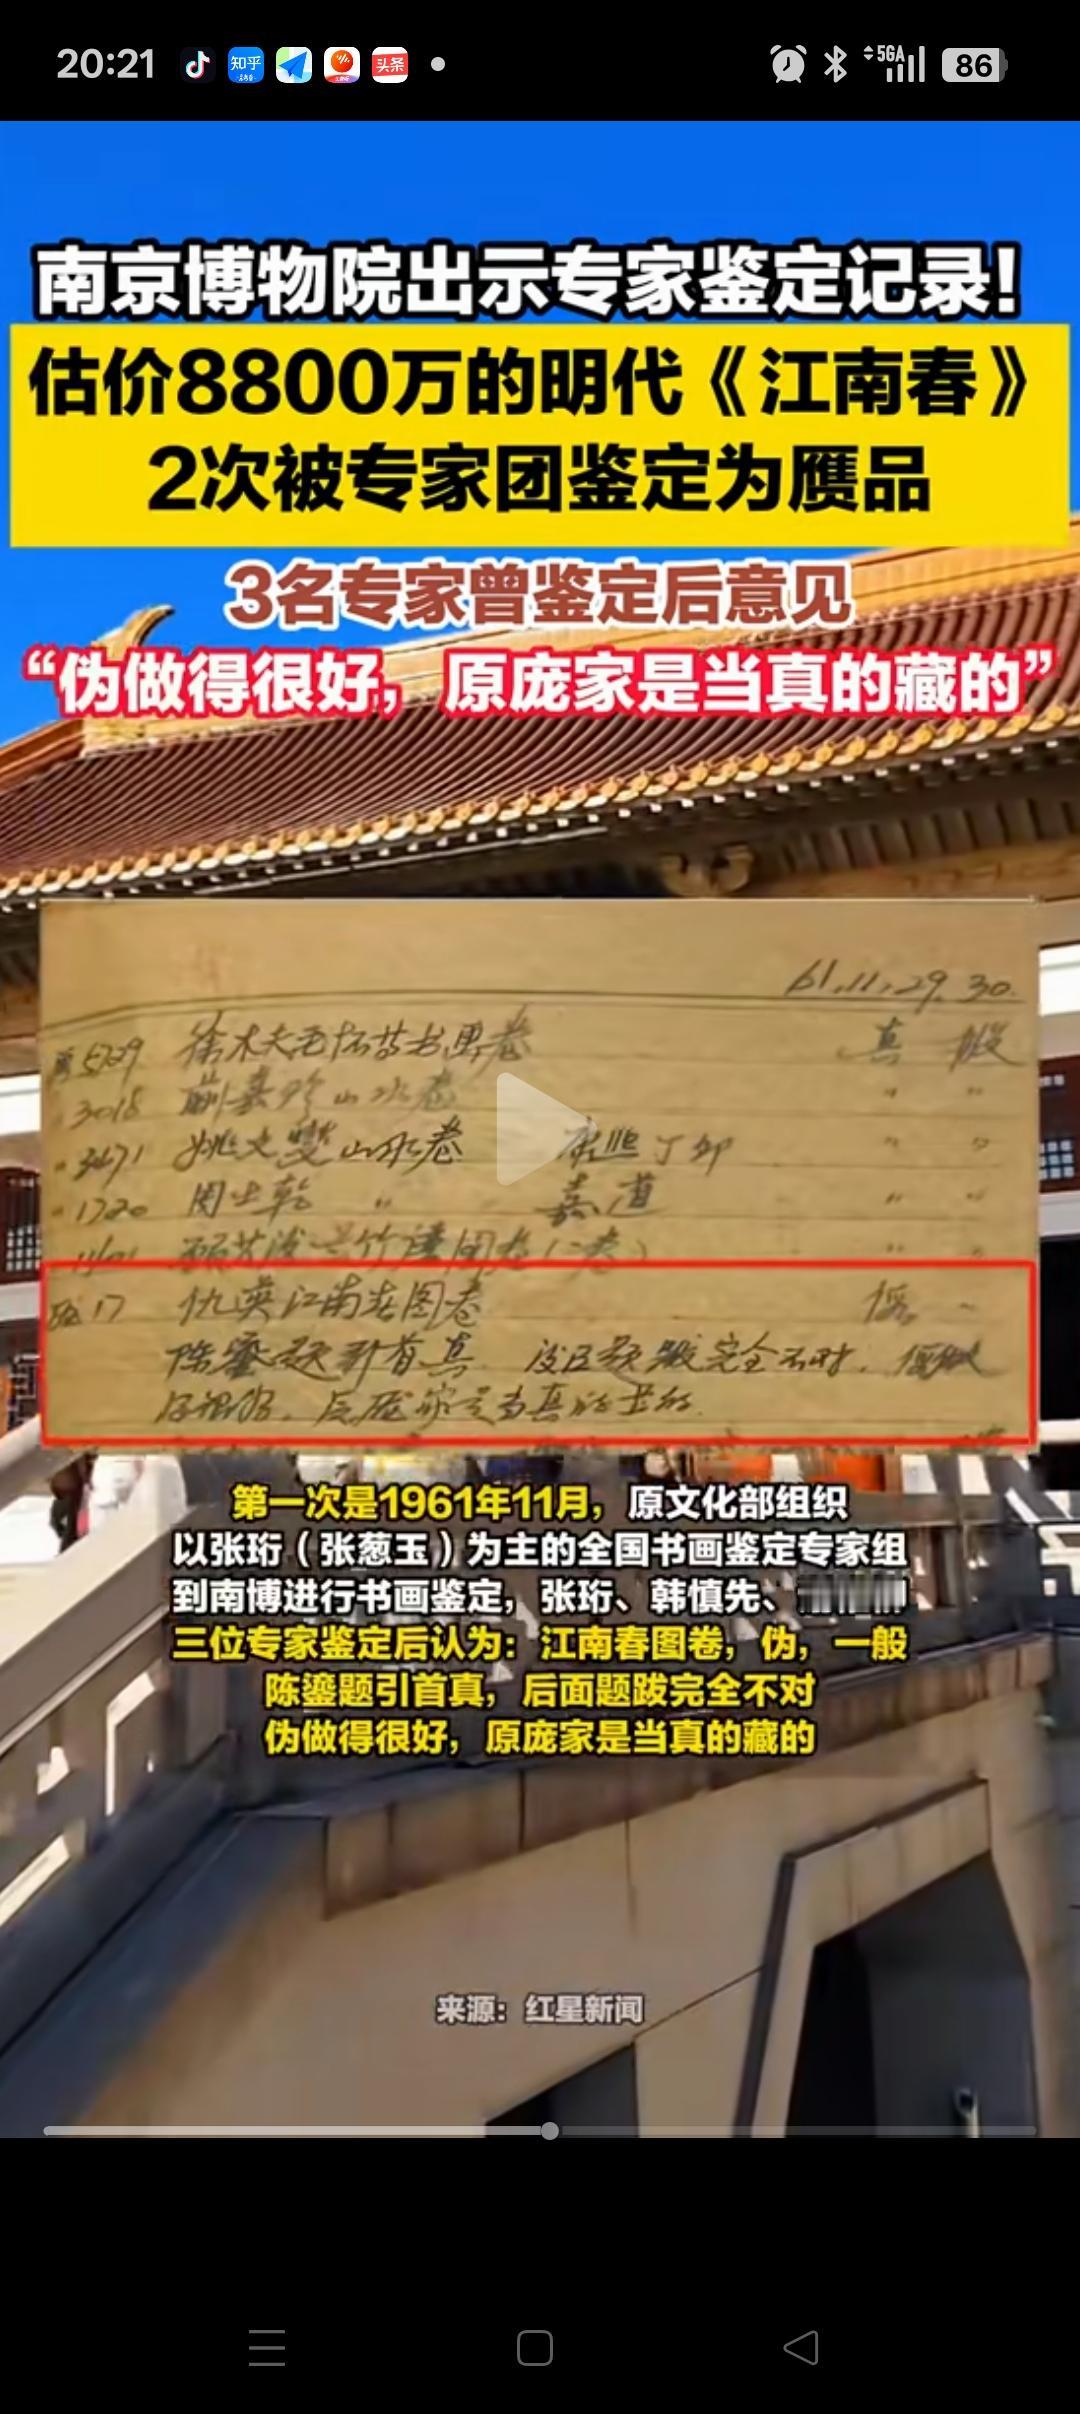 20:21
知乎
头条
5GA
86
南京博物院出示专家鉴定记录!
估价8800万的明代《江南春》
2次被专家团鉴定为赝品
3名专家曾鉴定后意见
“伪做得很好，原庞家是当真的藏的”
61.11.29.30.
5729
真 般
3018 山水卷 〃 〃
3471 姚文燮山水卷 康熙丁卯 〃 〃
1720 周士乾 〃 嘉道 〃 〃
17 仇英江南春图卷 伪
陈鎏题引首真 后面题跋完全不对，伪做
得很好，原庞家是当真的藏的
第一次是1961年11月，原文化部组织
以张珩（张葱玉）为主的全国书画鉴定专家组
到南博进行书画鉴定，张珩、韩慎先、
三位专家鉴定后认为：江南春图卷，伪，一般
陈鎏题引首真，后面题跋完全不对
伪做得很好，原庞家是当真的藏的
来源：红星新闻